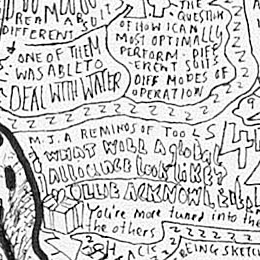 DREAM ABOUT
DIFFERENT
ONE OF THEM
WAS ABLE TO
DEAL WITH WATER
THE
QUESTION
OF HOW I CAN
MOST OPTIMALLY
PERFORM - DIFF
ERENT SUITS
DIFF MODES OF
OPERATION
M.J.A REMINDS OF TOO LS
WHAT WILL A global
allOWANCE look lIKE?
ACKNOWL
You're more tuned into the
he others
BEING SKETC